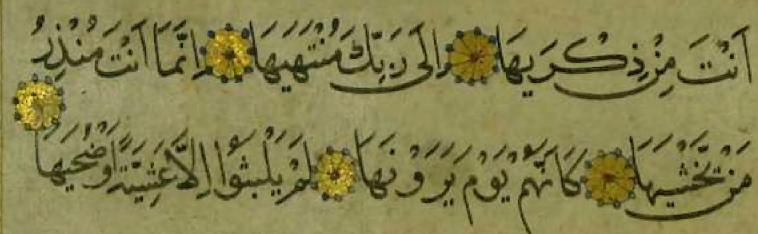 اَنْتَ مِنْ ذِكْرَيهَا اِلَى رَبِّكَ مُنْتَهَيهَا اِنَّمَا اَنْتَ مُنْذِرُ
مَنْ يَخْشَيهَا كَاَنَّهُمْ يَوْمَ يَرَوْنَهَا لَمْ يَلْبَثُوا اِلَّا عَشِيَّةً اَوْ ضُحَيهَا